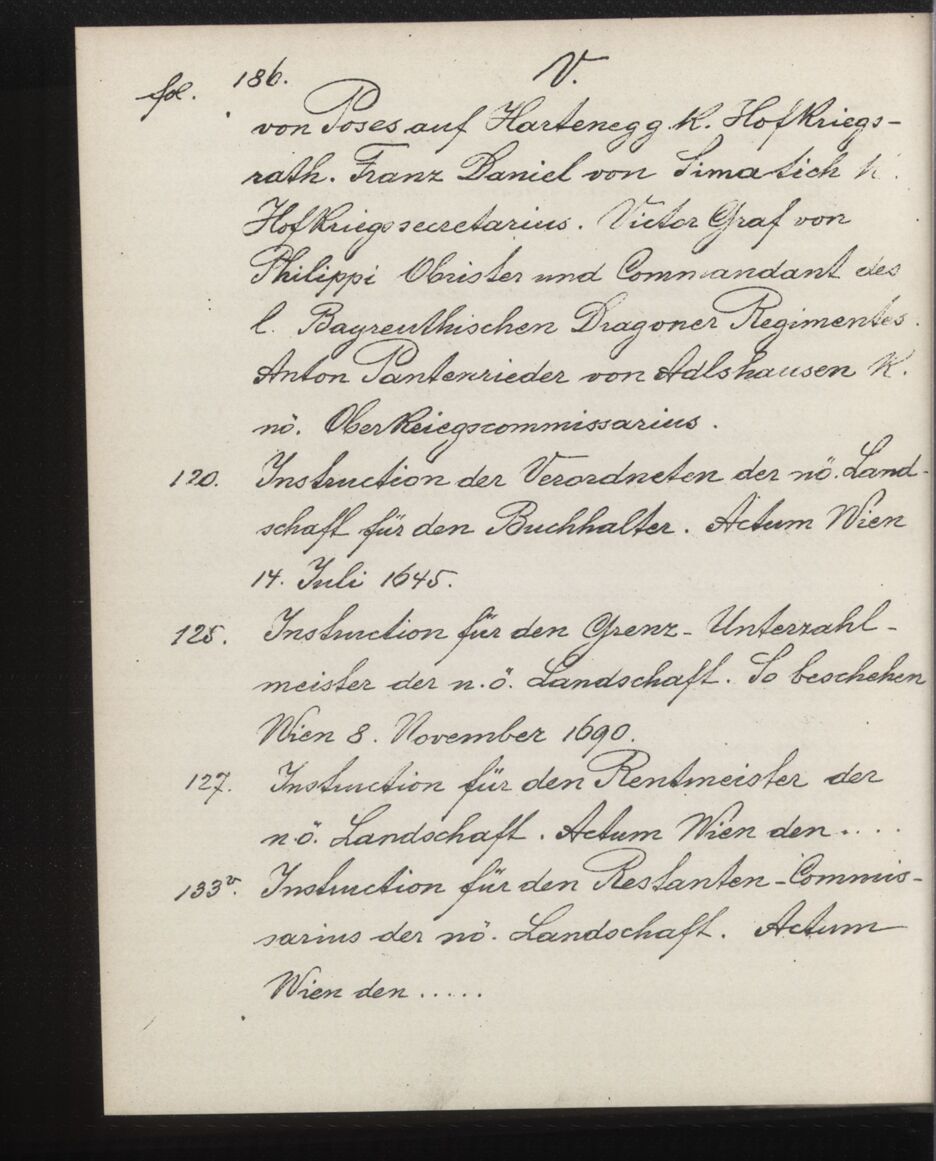 fol. 186. V.
von Poses auf Hartenegg k. Hofkriegs-
rath. Franz Daniel von Simatich k.
Hofkriegssecretarius. Victor Graf von
Philippi Obrister und Commandant des
l. Bayreuthischen Dragoner Regimentes.
Anton Pantenrieder von Adlshausen k.
nö. Oberkriegscommissarius.
120. Instruction der Verordneten der nö. Land-
schaft für den Buchhalter. Actum Wien
14. Juli 1645.
125. Instruction für den Grenz-Unterzahl-
meister der n.ö. Landschaft. So beschehen
Wien 8. November 1690.
127. Instruction für den Rentmeister der
n.ö. Landschaft. Actum Wien den ....
133v. Instruction für den Restanten-Commis-
sarius der nö. Landschaft. Actum
Wien den .....